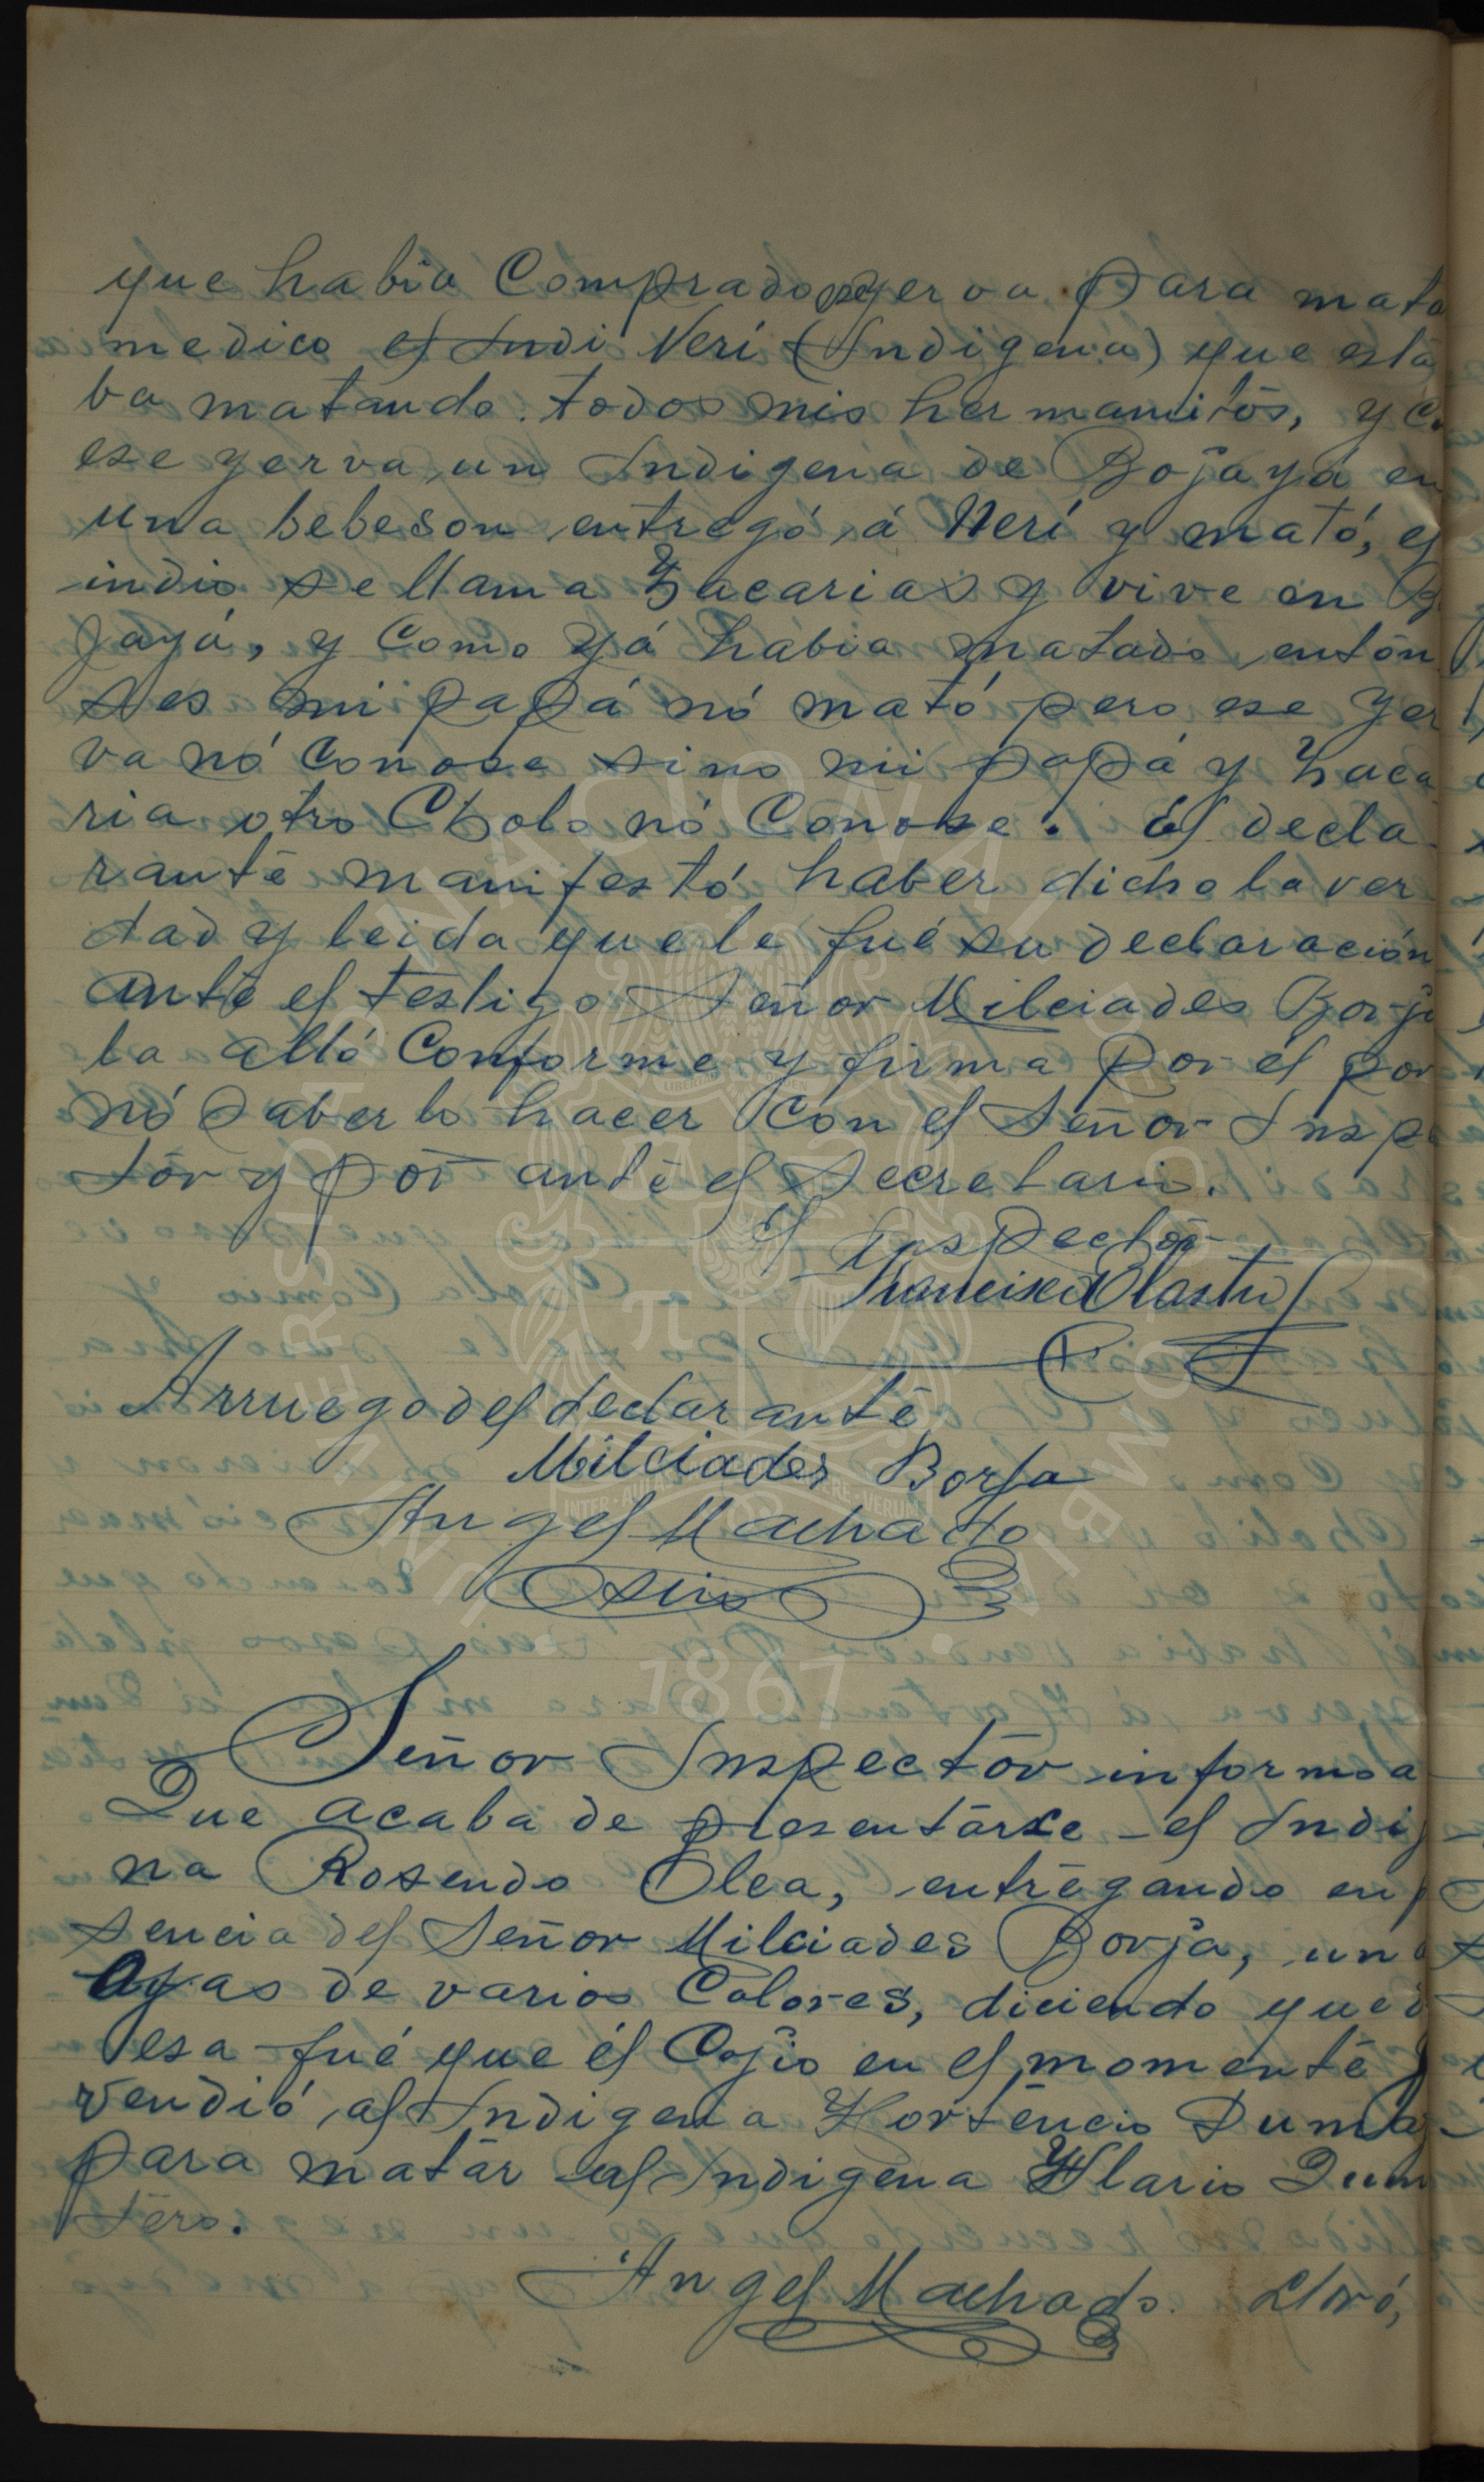 que habia Comprado ese yerva para mata
medico el Indi Neri (Indigena) que está
ba matando todos mis hermanitos, y
ese yerva un Indigena de Bojayá en
una bebeson entregó á Neri y mató, el
indio se llama Zacarias y vive en Bo
jayá, y Como yá habia matado entón
ses mi papá nó mató pero ese yer
va nó Conose sino mi papá y Zaca
ria otro Cholo nó Conose. El decla
rante manifestó haber dicho la ver
dad y leida que le fué su declaración
ante el testigo Señor Milciades Borja
la alló Conforme y firma por él por
nó saberlo hacer Con el Señor Inspe
tor y por ante el Secretario.
El Inspector
Francisco
Arruego del declarante
Milciades Borja
Angel Machado
Srio
Señor Inspector informo a
Que acaba de presentarse el Indig
na Rosendo Olea, entregando en p
sencia del Señor Milciades Borja, un
Oyas de varios Colores, diciendo que
esa fué que él Cojio en el momente
vendió al Indigena Hortencio Duma
para matar al Indigena Hlario Dum
tero.
Angel Machado. Lloró,
UNIVERSIDAD NACIONAL DE COLOMBIA
LIBERTAD Y ORDEN
INTER · AULAS · ACADEMIÆ · QUÆRE · VERUM
1867